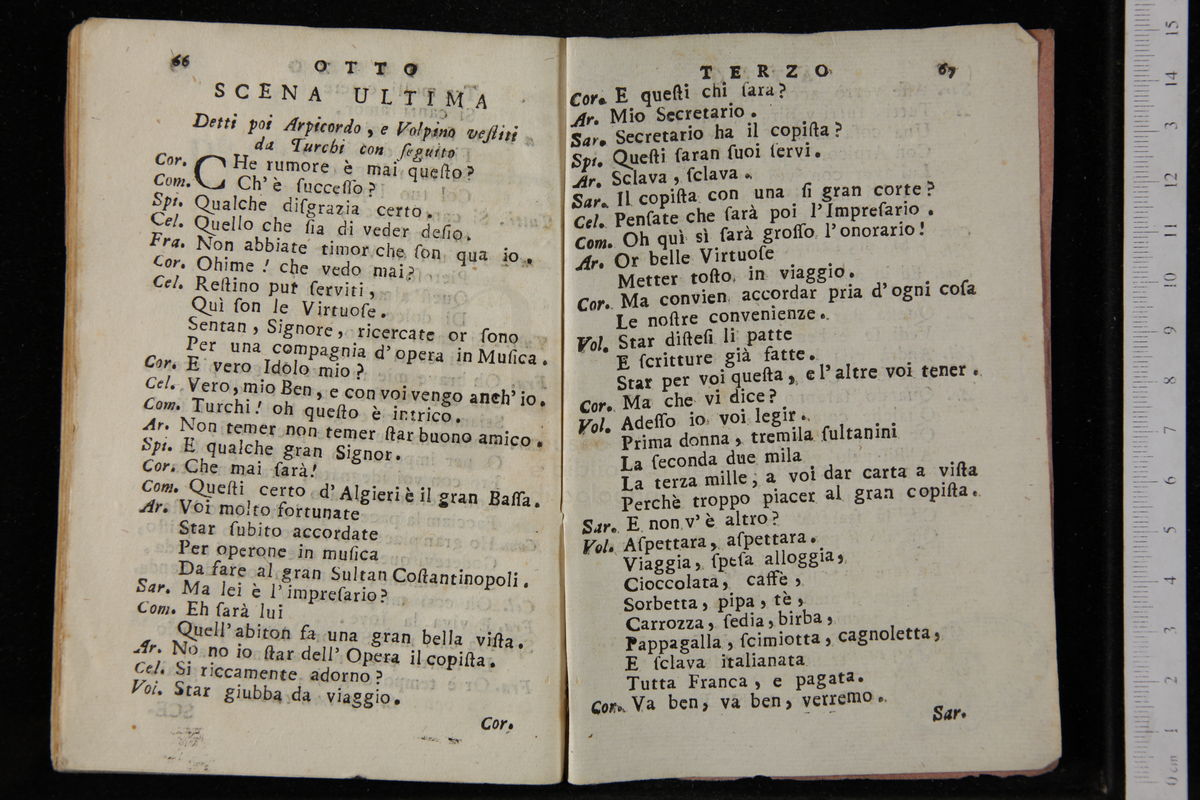 66
OTTO
SCENA ULTIMA
Detti poi Arpicordo, e Volpino veſtiti
da Turchi con ſeguito
Cor. CHe rumore è mai queſto?
Com. Ch' è ſucceſſo?
Spi. Qualche diſgrazia certo.
Cel. Quello che ſia di veder deſio.
Fra. Non abbiate timor che ſon qua io.
Cor. Ohime! che vedo mai?
Cel. Reſtino pur ſerviti,
Quì ſon le Virtuoſe.
Sentan, Signore, ricercate or ſono
Per una compagnia d'opera in Muſica.
Cor. E vero Idolo mio?
Cel. Vero, mio Ben, e con voi vengo anch'io.
Com. Turchi! oh queſto è intrico.
Ar. Non temer non temer ſtar buono amico.
Spi. E qualche gran Signor.
Cor. Che mai ſarà!
Com. Queſti certo d'Algieri è il gran Baſſa.
Ar. Voi molto fortunate
Star ſubito accordate
Per operone in muſica
Da fare al gran Sultan Coſtantinopoli.
Sar. Ma lei è l'impreſario?
Com. Eh ſarà lui
Quell'abiton fa una gran bella viſta.
Ar. No no io ſtar dell'Opera il copiſta.
Cel. Si riccamente adorno?
Vol. Star giubba da viaggio.
Cor.
TERZO
67
Cor. E queſti chi ſara?
Ar. Mio Secretario.
Sar. Secretario ha il copiſta?
Spi. Queſti ſaran ſuoi ſervi.
Ar. Sclava, ſclava.
Sar. Il copiſta con una ſi gran corte?
Cel. Penſate che ſarà poi l'Impreſario.
Com. Oh quì sì ſarà groſſo l'onorario!
Ar. Or belle Virtuoſe
Metter toſto in viaggio.
Cor. Ma convien accordar pria d'ogni coſa
Le noſtre convenienze.
Vol. Star diſteſi li patte
E ſcritture già fatte.
Star per voi queſta, e l'altre voi tener.
Cor. Ma che vi dice?
Vol. Adeſſo io voi legir.
Prima donna, tremila ſultanini
La ſeconda due mila
La terza mille, a voi dar carta a viſta
Perchè troppo piacer al gran copiſta.
Sar. E non v'è altro?
Vol. Aſpettara, aſpettara.
Viaggia, ſpeſa alloggia,
Cioccolata, caffè,
Sorbetta, pipa, tè,
Carrozza, ſedia, birba,
Pappagalla, ſcimiotta, cagnoletta,
E ſclava italianata
Tutta Franca, e pagata.
Cor. Va ben, va ben, verremo.
Sar.